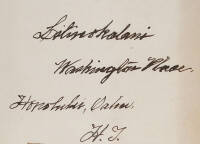 Liliuokalani
Washington Place.
Honolulu, Oahu.
H. T.